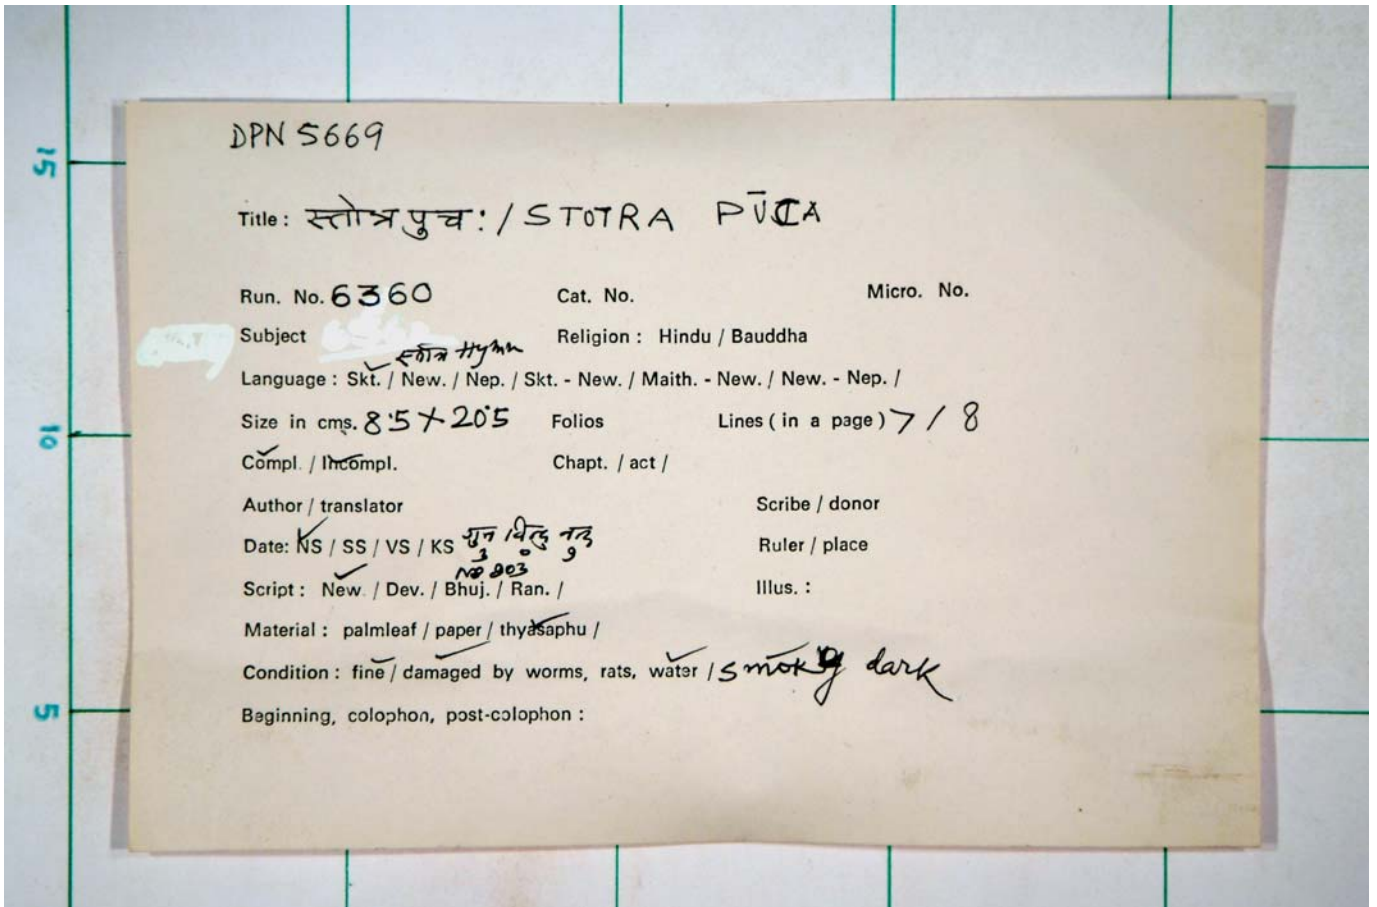 DPN 5669
15
Title : स्तोत्र पुचः / STOTRA PŪCA
Run. No. 6360 Cat. No. Micro. No.
Subject Religion : Hindu / Bauddha
स्तोत्र Hymn
Language : Skt. / New. / Nep. / Skt. - New. / Maith. - New. / New. - Nep. /
Size in cms. 8.5 X 20.5 Folios Lines ( in a page ) 7 / 8
10
Compl. / Incompl. Chapt. / act /
Author / translator Scribe / donor
Date: NS / SS / VS / KS Ruler / place
3 0 9
NS 903
Script : New. / Dev. / Bhuj. / Ran. / Illus. :
Material : palmleaf / paper / thyasaphu /
Condition : fine / damaged by worms, rats, water / smoky dark
5
Beginning, colophon, post-colophon :